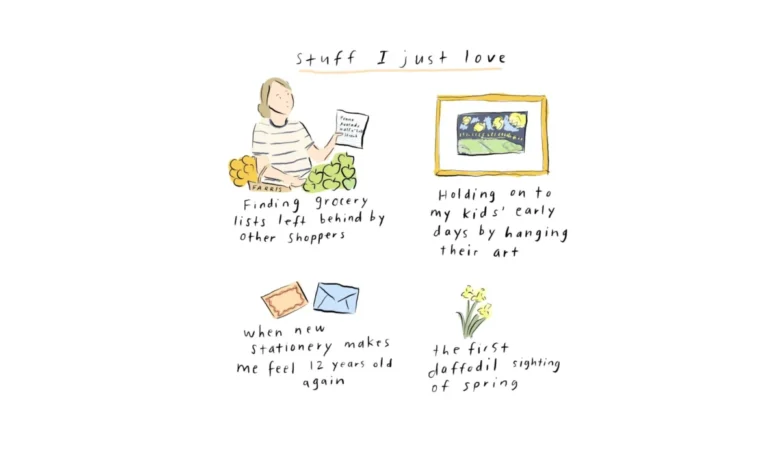 Stuff I just love
Finding grocery
lists left behind by
other shoppers
Holding on to
my kids' early
days by hanging
their art
when new
stationery makes
me feel 12 years old
again
the first
daffodil sighting
of spring